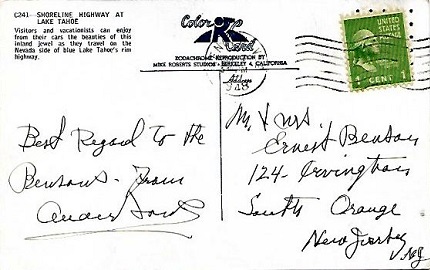 C241— SHORELINE HIGHWAY AT
LAKE TAHOE
Visitors and vacationists can enjoy
from their cars the beauties of this
inland jewel as they travel on the
Nevada side of blue Lake Tahoe's rim
highway.
Color Card
KODACHROME REPRODUCTION BY
MIKE ROBERTS STUDIOS - BERKELEY 4, CALIFORNIA
Address
UNITED
STATES
POSTAGE
1 CENT 1
Best Regard to the
Bensons - From
Mr & Mrs
Ernest Benson
124 - Irvington
South Orange
New Jersey
N.J.